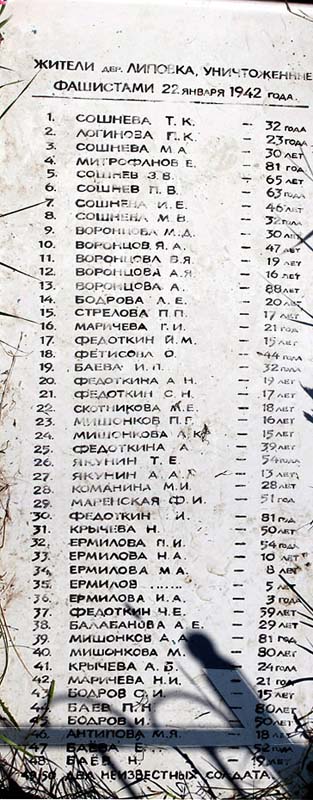 ЖИТЕЛИ ДЕР. ЛИПОВКА, УНИЧТОЖЕННЫЕ
ФАШИСТАМИ 22 ЯНВАРЯ 1942 ГОДА.
1. СОШНЕВА Т. К. – 32 ГОДА
2. ЛОГИНОВА П. К. – 23 ГОДА
3. СОШНЕВА М. А. – 30 ЛЕТ
4. МИТРОФАНОВ Е. – 81 ГОД
5. СОШНЕВ З. В. – 65 ЛЕТ
6. СОШНЕВ П. В. – 63 ГОДА
7. СОШНЕВА И. Е. – 46 ЛЕТ
8. СОШНЕВА М. В. – 32 ГОДА
9. ВОРОНЦОВА М. Д. – 30 ЛЕТ
10. ВОРОНЦОВ Я. А. – 47 ЛЕТ
11. ВОРОНЦОВА В. Я. – 19 ЛЕТ
12. ВОРОНЦОВА А. Я. – 16 ЛЕТ
13. ВОРОНЦОВА А. – 88 ЛЕТ
14. БОДРОВА Л. Е. – 20 ЛЕТ
15. СТРЕЛОВА П. П. – 17 ЛЕТ
16. МАРИЧЕВА Г. И. – 21 ГОД
17. ФЕДОТКИН И. М. – 15 ЛЕТ
18. ФЕТИСОВА О. – 44 ГОДА
19. БАЕВА И. П. – 32 ГОДА
20. ФЕДОТКИНА А. Н. – 19 ЛЕТ
21. ФЕДОТКИН С. Н. – 17 ЛЕТ
22. СКОТНИКОВА М. Е. – 18 ЛЕТ
23. МИШОНКОВ П. Г. – 16 ЛЕТ
24. МИШОНКОВА А. К. – 15 ЛЕТ
25. ФЕДОТКИНА А. – 39 ЛЕТ
26. ЯКУНИН Т. Е. – 54 ГОДА
27. ЯКУНИН А. А. – 13 ЛЕТ
28. КОМАНИНА М. И. – 28 ЛЕТ
29. МАРЕНСКАЯ Ф. И. – 51 ГОД
30. ФЕДОТКИН И. – 81 ГОД
31. КРЫЧЕВА Н. – 50 ЛЕТ
32. ЕРМИЛОВА П. И. – 54 ГОДА
33. ЕРМИЛОВА Н. А. – 10 ЛЕТ
34. ЕРМИЛОВА М. А. – 8 ЛЕТ
35. ЕРМИЛОВ ....... – 5 ЛЕТ
36. ЕРМИЛОВА И. А. – 3 ГОДА
37. ФЕДОТКИН Ч. Е. – 59 ЛЕТ
38. БАЛАБАНОВА А. Е. – 29 ЛЕТ
39. МИШОНКОВ А. А. – 81 ГОД
40. МИШОНКОВА М. – 80 ЛЕТ
41. КРЫЧЕВА А. Б. – 24 ГОДА
42. МАРИЧЕВА Н. И. – 21 ГОД
43. БОДРОВ С. И. – 15 ЛЕТ
44. БАЕВ П. Н. – 80 ЛЕТ
45. БОДРОВ И. – 50 ЛЕТ
46. АНТИПОВА М. Я. – 18 ЛЕТ
47. БАЕВА Е. – 52 ГОДА
48. БАЕВ Н. – 19 ЛЕТ
49/50. ДВА НЕИЗВЕСТНЫХ СОЛДАТА.